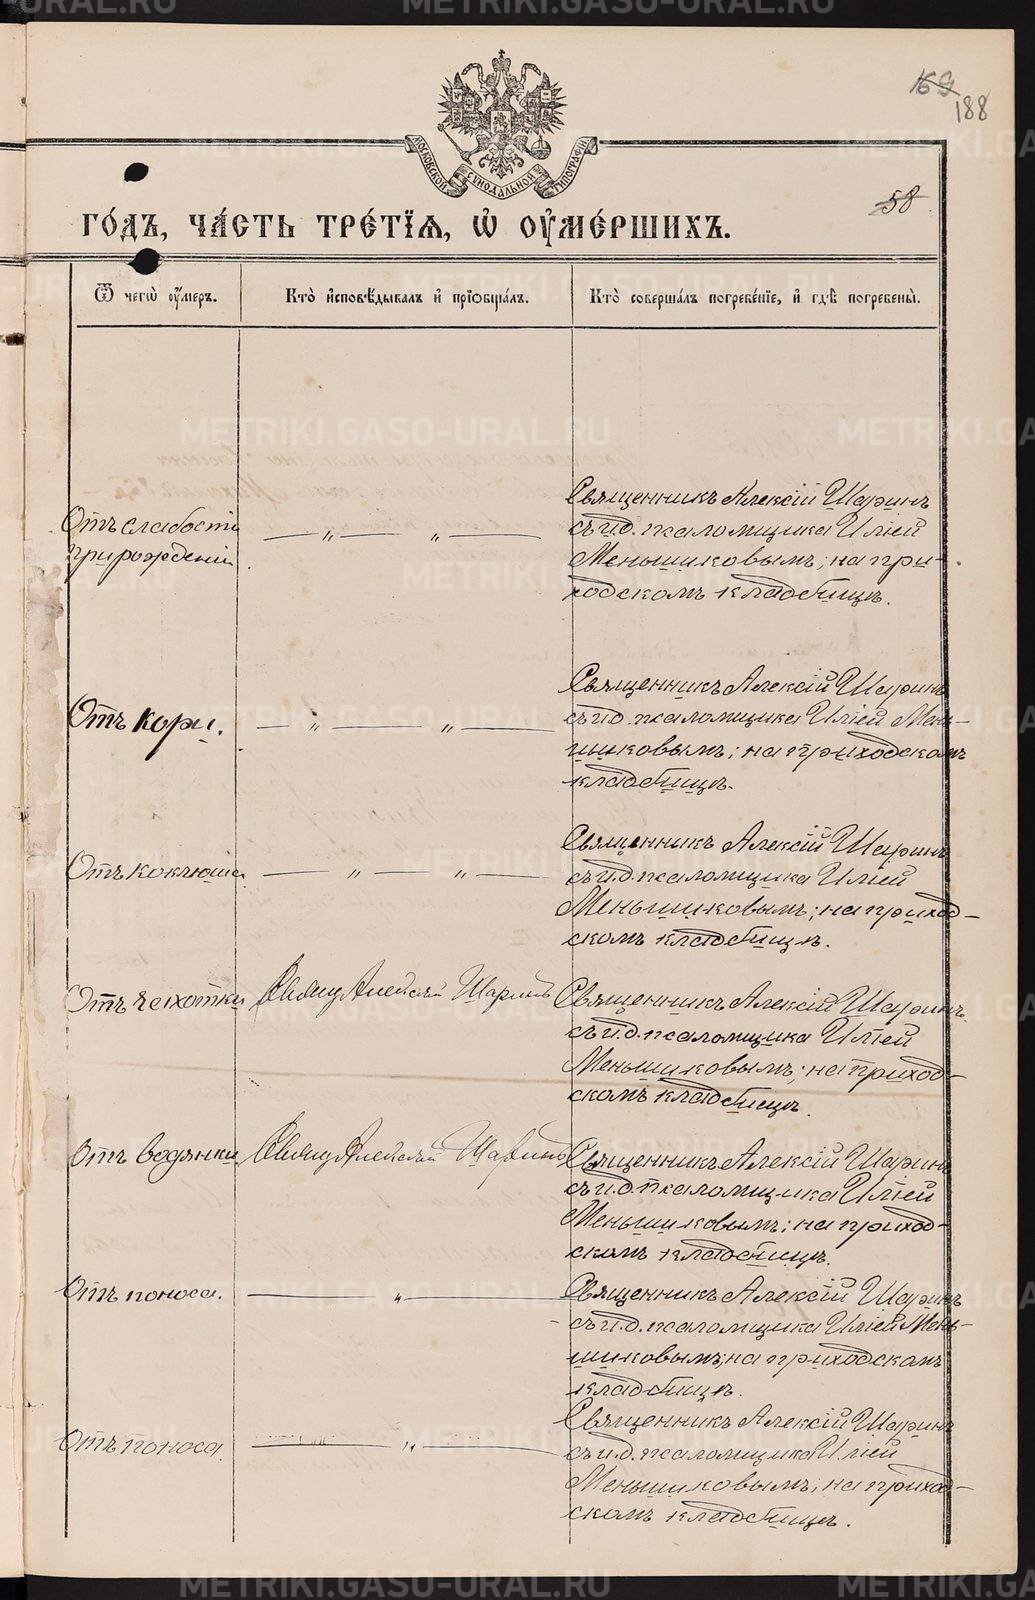 METRIKI.GASO-URAL.RU
169
188
МОСКОВСКОЙ СѴНОДАЛЬНОЙ ТИПОГРАФІИ
58
го́дъ, ча́сть тре́тїѧ, ѡ҆ оу҆ме́ршихъ.
Ѿ чегѡ̀ оу҆́меръ.
Кто̀ и҆сповѣ́дывалъ и҆ прїѡбща́лъ.
Кто̀ соверша́лъ погребе́нїе, и҆ гдѣ̀ погребены̀.
Отъ слабости
при рожденіи.
— „ — „ —
Священникъ Алексій Шаринъ
съ и.д. псаломщика Иліей
Меньшиковымъ; на при-
ходскомъ кладбищѣ.
Отъ кори.
— „ — „ —
Священникъ Алексій Шаринъ
съ и.д. псаломщика Иліей Мень-
шиковымъ; на приходскомъ
кладбищѣ.
Отъ коклюша.
— „ — „ —
Священникъ Алексій Шаринъ
съ и.д. псаломщика Иліей
Меньшиковымъ; на приход-
скомъ кладбищѣ.
Отъ чахотки
Свящ Алексѣй Шаринъ
Священникъ Алексій Шаринъ
съ и.д. псаломщика Иліей
Меньшиковымъ; на приход-
скомъ кладбищѣ.
Отъ водянки
Свящ Алексѣй Шаринъ
Священникъ Алексій Шаринъ
съ и.д. псаломщика Иліей
Меньшиковымъ; на приход-
скомъ кладбищѣ.
Отъ поноса.
— „ —
Священникъ Алексій Шаринъ
съ и.д. псаломщика Иліей Мень-
шиковымъ; на приходскомъ
кладбищѣ.
Отъ поноса.
— „ —
Священникъ Алексій Шаринъ
съ и.д. псаломщика Иліей
Меньшиковымъ; на приход-
скомъ кладбищѣ.
METRIKI.GASO-URAL.RU